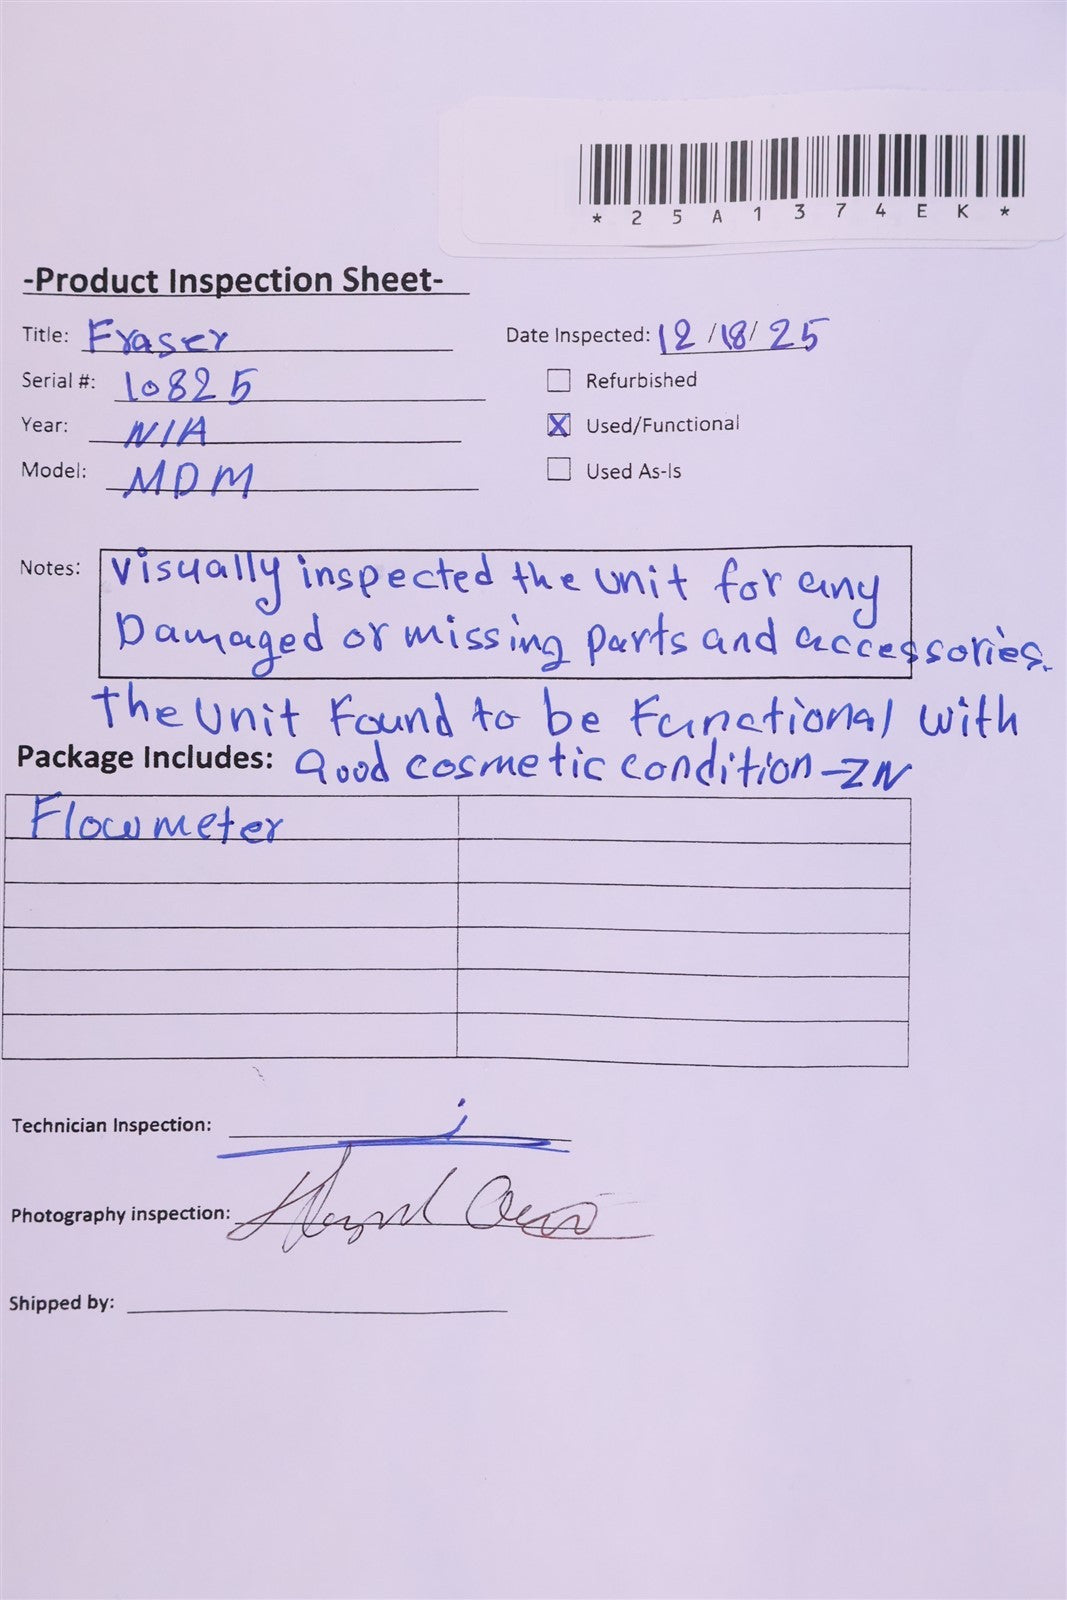 *25A1374EK*
-Product Inspection Sheet-
Title: Fraser
Date Inspected: 12/18/25
Serial #: 10825
Refurbished
Year: N/A
Used/Functional
Model: MDM
Used As-Is
Notes: Visually inspected the unit for any
Damaged or missing parts and accessories.
the Unit Found to be Functional with
Package Includes: Good cosmetic condition -ZN
Flowmeter
Technician Inspection:
Photography inspection:
Shipped by: